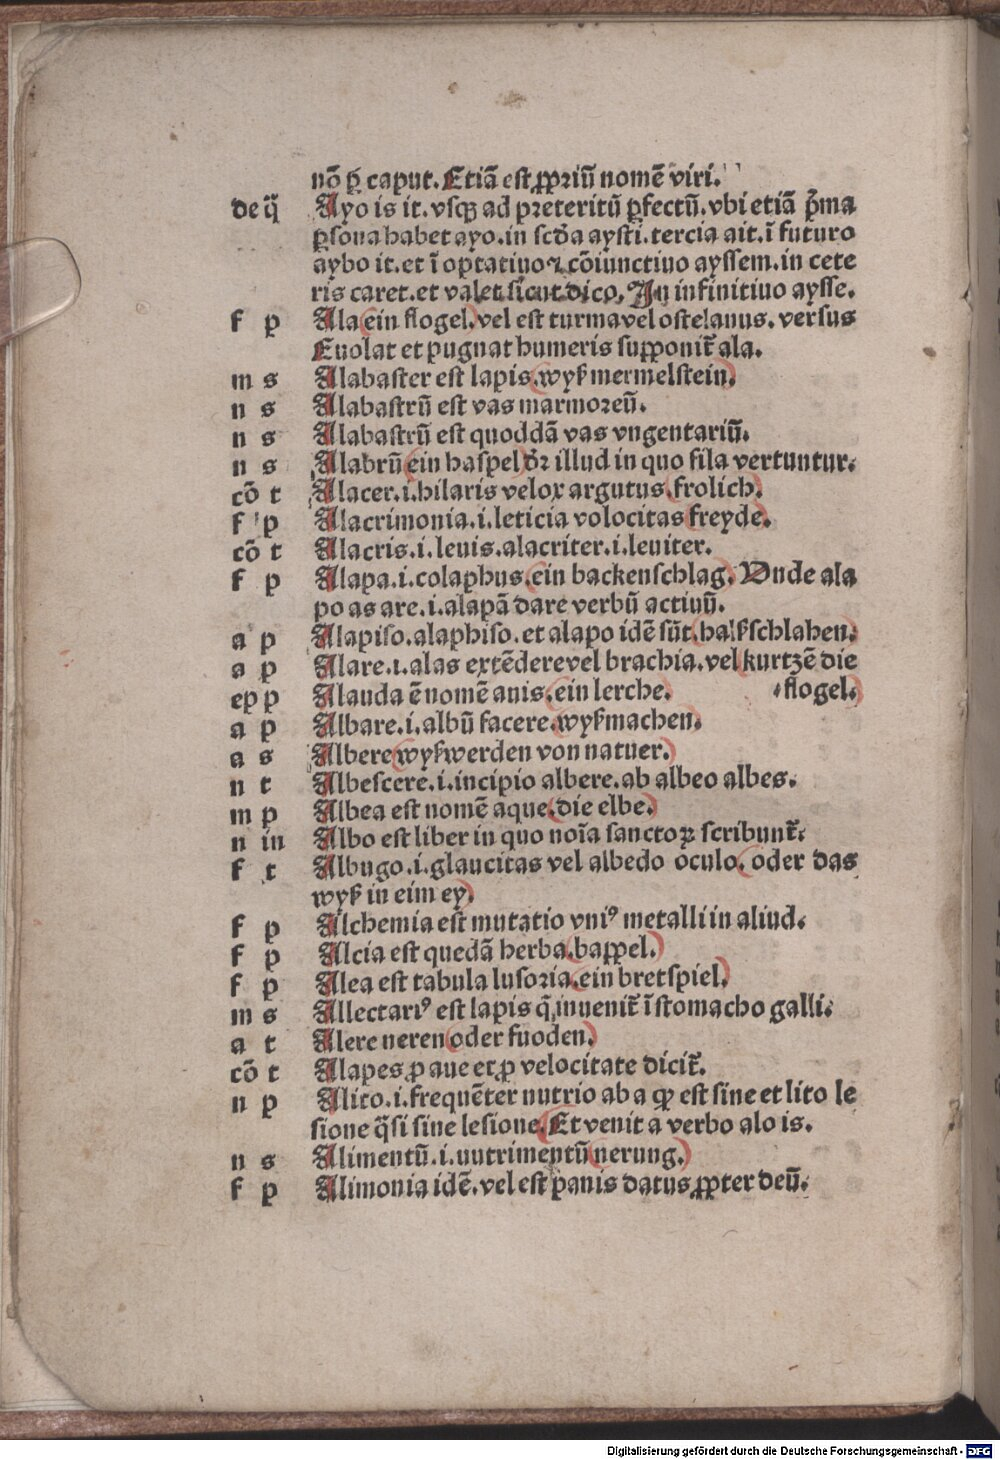 nō ꝑ caput. Etiā est ꝓpriū nomē viri.
de q̄ Ayo is it. vsqꝫ ad preteritū ꝑfectū. vbi etiā p̄ma
ꝑsona habet ayo. in scd̄a aysti. tercia ait. ī futuro
aybo it. et ī optatiuo ⁊ cōiunctiuo ayssem. in cete
ris caret. et valet sicut dico. In infinitiuo aysse.
f p Ala ein flogel. vel est turma vel ostelanus. versus
Euolat et pugnat humeris supponit̄ ala.
m s Alabaster est lapis. wyß mermelstein.
n s Alabastrū est vas marmoreū.
n s Alabastrū est quoddā vas vngentariū.
n s Alabrū ein haspel dr̄ illud in quo fila vertuntur.
cō t Alacer .i. hilaris velox argutus. frolich.
f p Alacrimonia .i. leticia volocitas freyde.
cō t Alacris .i. leuis. alacriter .i. leuiter.
f p Alapa .i. colaphus. ein backenschlag. Vnde ala
po as are .i. alapā dare verbū actiuū.
a p Alapiso. alaphiso. et alapo idē sūt. halßschlahen.
a p Alare .i. alas extēdere vel brachia. vel kurtzē die
epp Alauda ē nomē auis. ein lerche. flogel.
a p Albare .i. albū facere. wyßmachen.
a s Albere wyßwerden von natuer.
n t Albescere .i. incipio albere. ab albeo albes.
m p Albea est nomē aque. die elbe.
n in Albo est liber in quo noīa sanctoꝝ scribunt̄.
f t Albugo .i. glaucitas vel albedo oculo. oder das
wyß in eim ey.
f p Alchemia est mutatio vniꝰ metalli in aliud.
f p Alcia est quedā herba. bappel.
f p Alea est tabula lusoria. ein bretspiel.
m s Allectariꝰ est lapis q̄ inuenit̄ ī stomacho galli.
a t Alere neren oder fuoden.
cō t Alapes ꝓ aue et ꝓ velocitate dicit̄.
n p Alito .i. frequēter nutrio ab a qꝫ est sine et lito le
sione q̄si sine lesione. Et venit a verbo alo is.
n s Alimentū .i. uutrimentū nerung.
f p Alimonia idē. vel est panis datus ꝓpter deū.
Digitalisierung gefördert durch die Deutsche Forschungsgemeinschaft - DFG